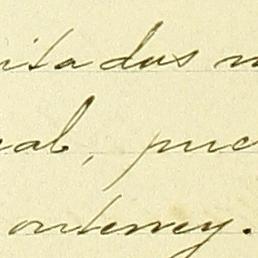 itadas
al, pue
onterrey.